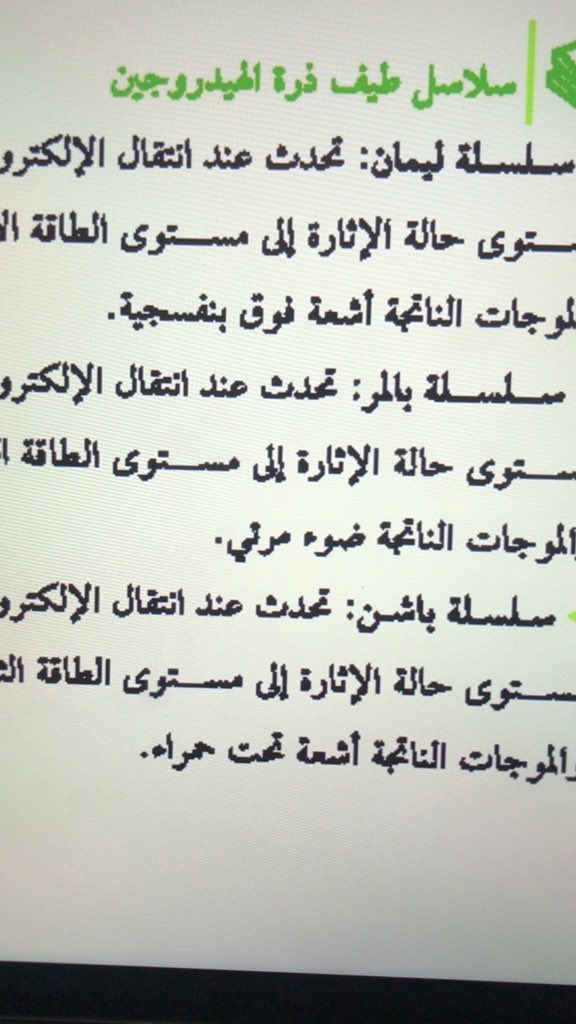 سلاسل طيف ذرة الهيدروجين
سلسلة ليمان: تحدث عند انتقال الإلكترو
ستوى حالة الإثارة إلى مستوى الطاقة الا
لموجات الناتجة أشعة فوق بنفسجية.
سلسلة بالمر: تحدث عند انتقال الإلكترو
ستوى حالة الإثارة إلى مستوى الطاقة ا
الموجات الناتجة ضوء مرئي.
سلسلة باشن: تحدث عند انتقال الإلكترو
ستوى حالة الإثارة إلى مستوى الطاقة الث
والموجات الناتجة أشعة تحت حمراء.